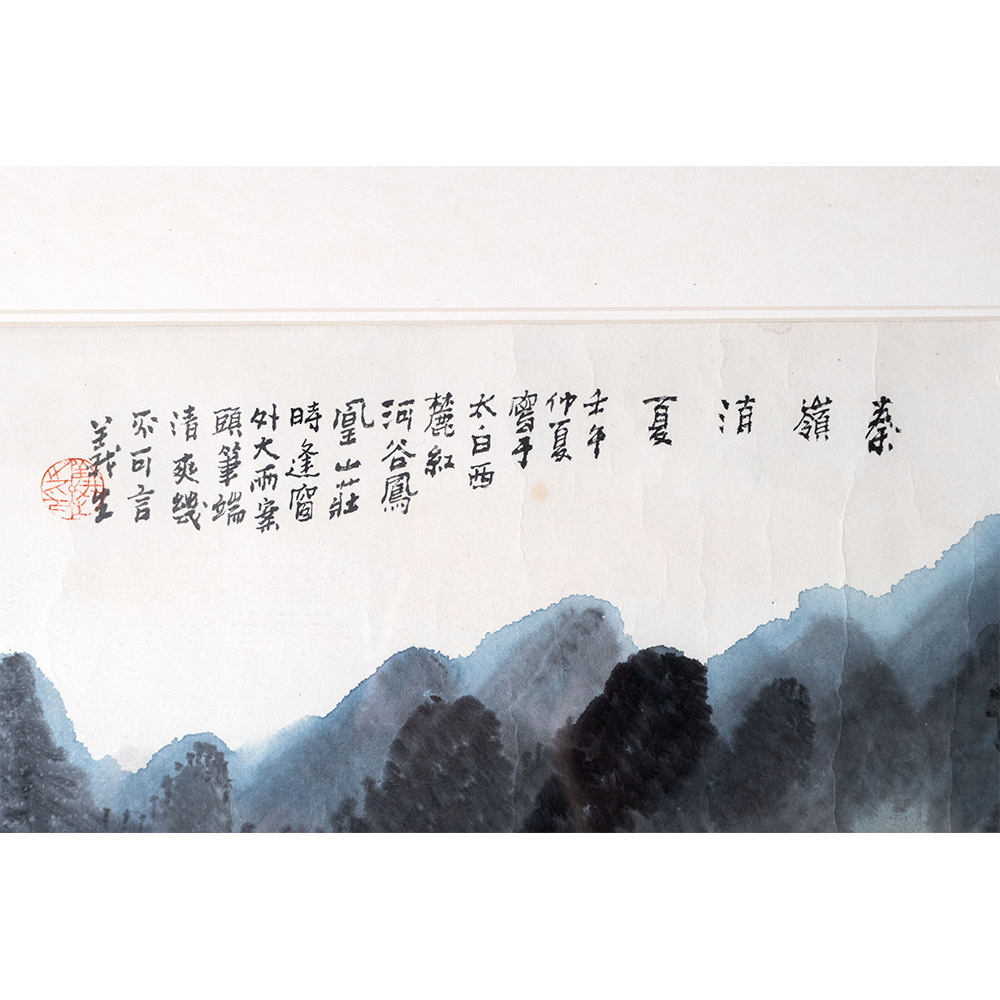 秦嶺清夏
壬午
仲夏
寫于
太白西
麓紅
河谷鳳
凰山莊
時逢窗
外大雨案
頭筆端
清爽幾
不可言
義生